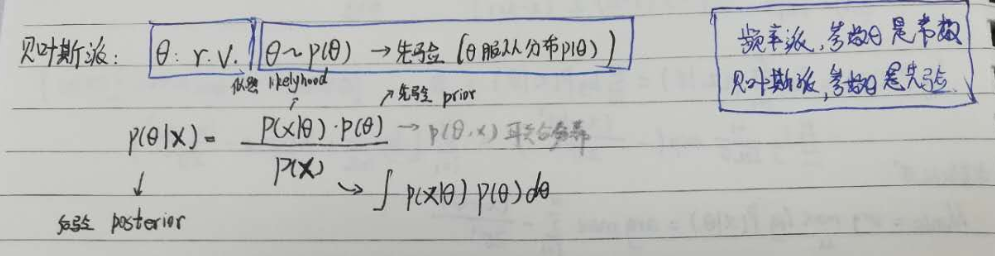 贝叶斯派: θ: r.v. θ~p(θ) → 先验 (θ服从分布p(θ))
频率派,参数θ是常数
贝叶斯派,参数θ是先验.
似然 likelyhood
↗先验 prior
p(θ|x) = P(x|θ)·p(θ) / P(x) → p(θ,x) 联合概率
↘ ∫ p(x|θ) p(θ) dθ
↓
后验 posterior